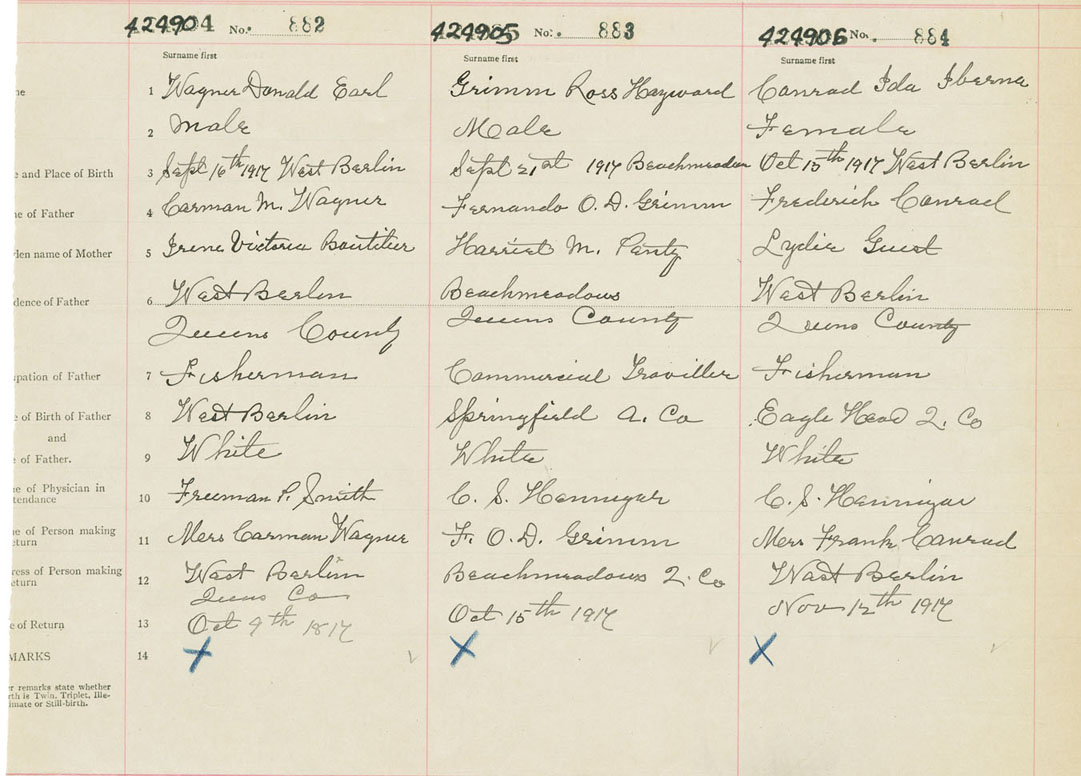 424904 No. 882
424905 No. 883
424906 No. 884
Surname first
Surname first
Surname first
me
1 Wagner Donald Earl
Grimm Ross Hayward
Conrad Ida Iberna
2 Male
Male
Female
e and Place of Birth
3 Sept 16th 1917 West Berlin
Sept 21st 1917 Beachmeadow
Oct 15th 1917 West Berlin
me of Father
4 Carman M. Wagner
Fernando O. D. Grimm
Frederick Conrad
den name of Mother
5 Irene Victoria Boutilier
Harriet M.
Lydia Guest
dence of Father
6 West Berlin
Beachmeadows
West Berlin
Queens County
Queens County
Queens County
pation of Father
7 Fisherman
Commercial Traviller
Fisherman
e of Birth of Father
and
8 West Berlin
Springfield A. Co
Eagle Head Q. Co
e of Father.
9 White
White
White
me of Physician in
tendance
10 Freeman P. Smith
C. S. Hennigar
C. S. Hennigar
ne of Person making
eturn
11 Mers Carman Wagner
F. O. D. Grimm
Mers Frank Conrad
ress of Person making
eturn
12 West Berlin
Queens Co
Beachmeadows Q. Co
West Berlin
e of Return
13 Oct 9th 1817
Oct 15th 1917
Nov 12th 1917
MARKS
14 X
X
X
er remarks state whether
rth is Twin, Triplet, Ille-
imate or Still-birth.